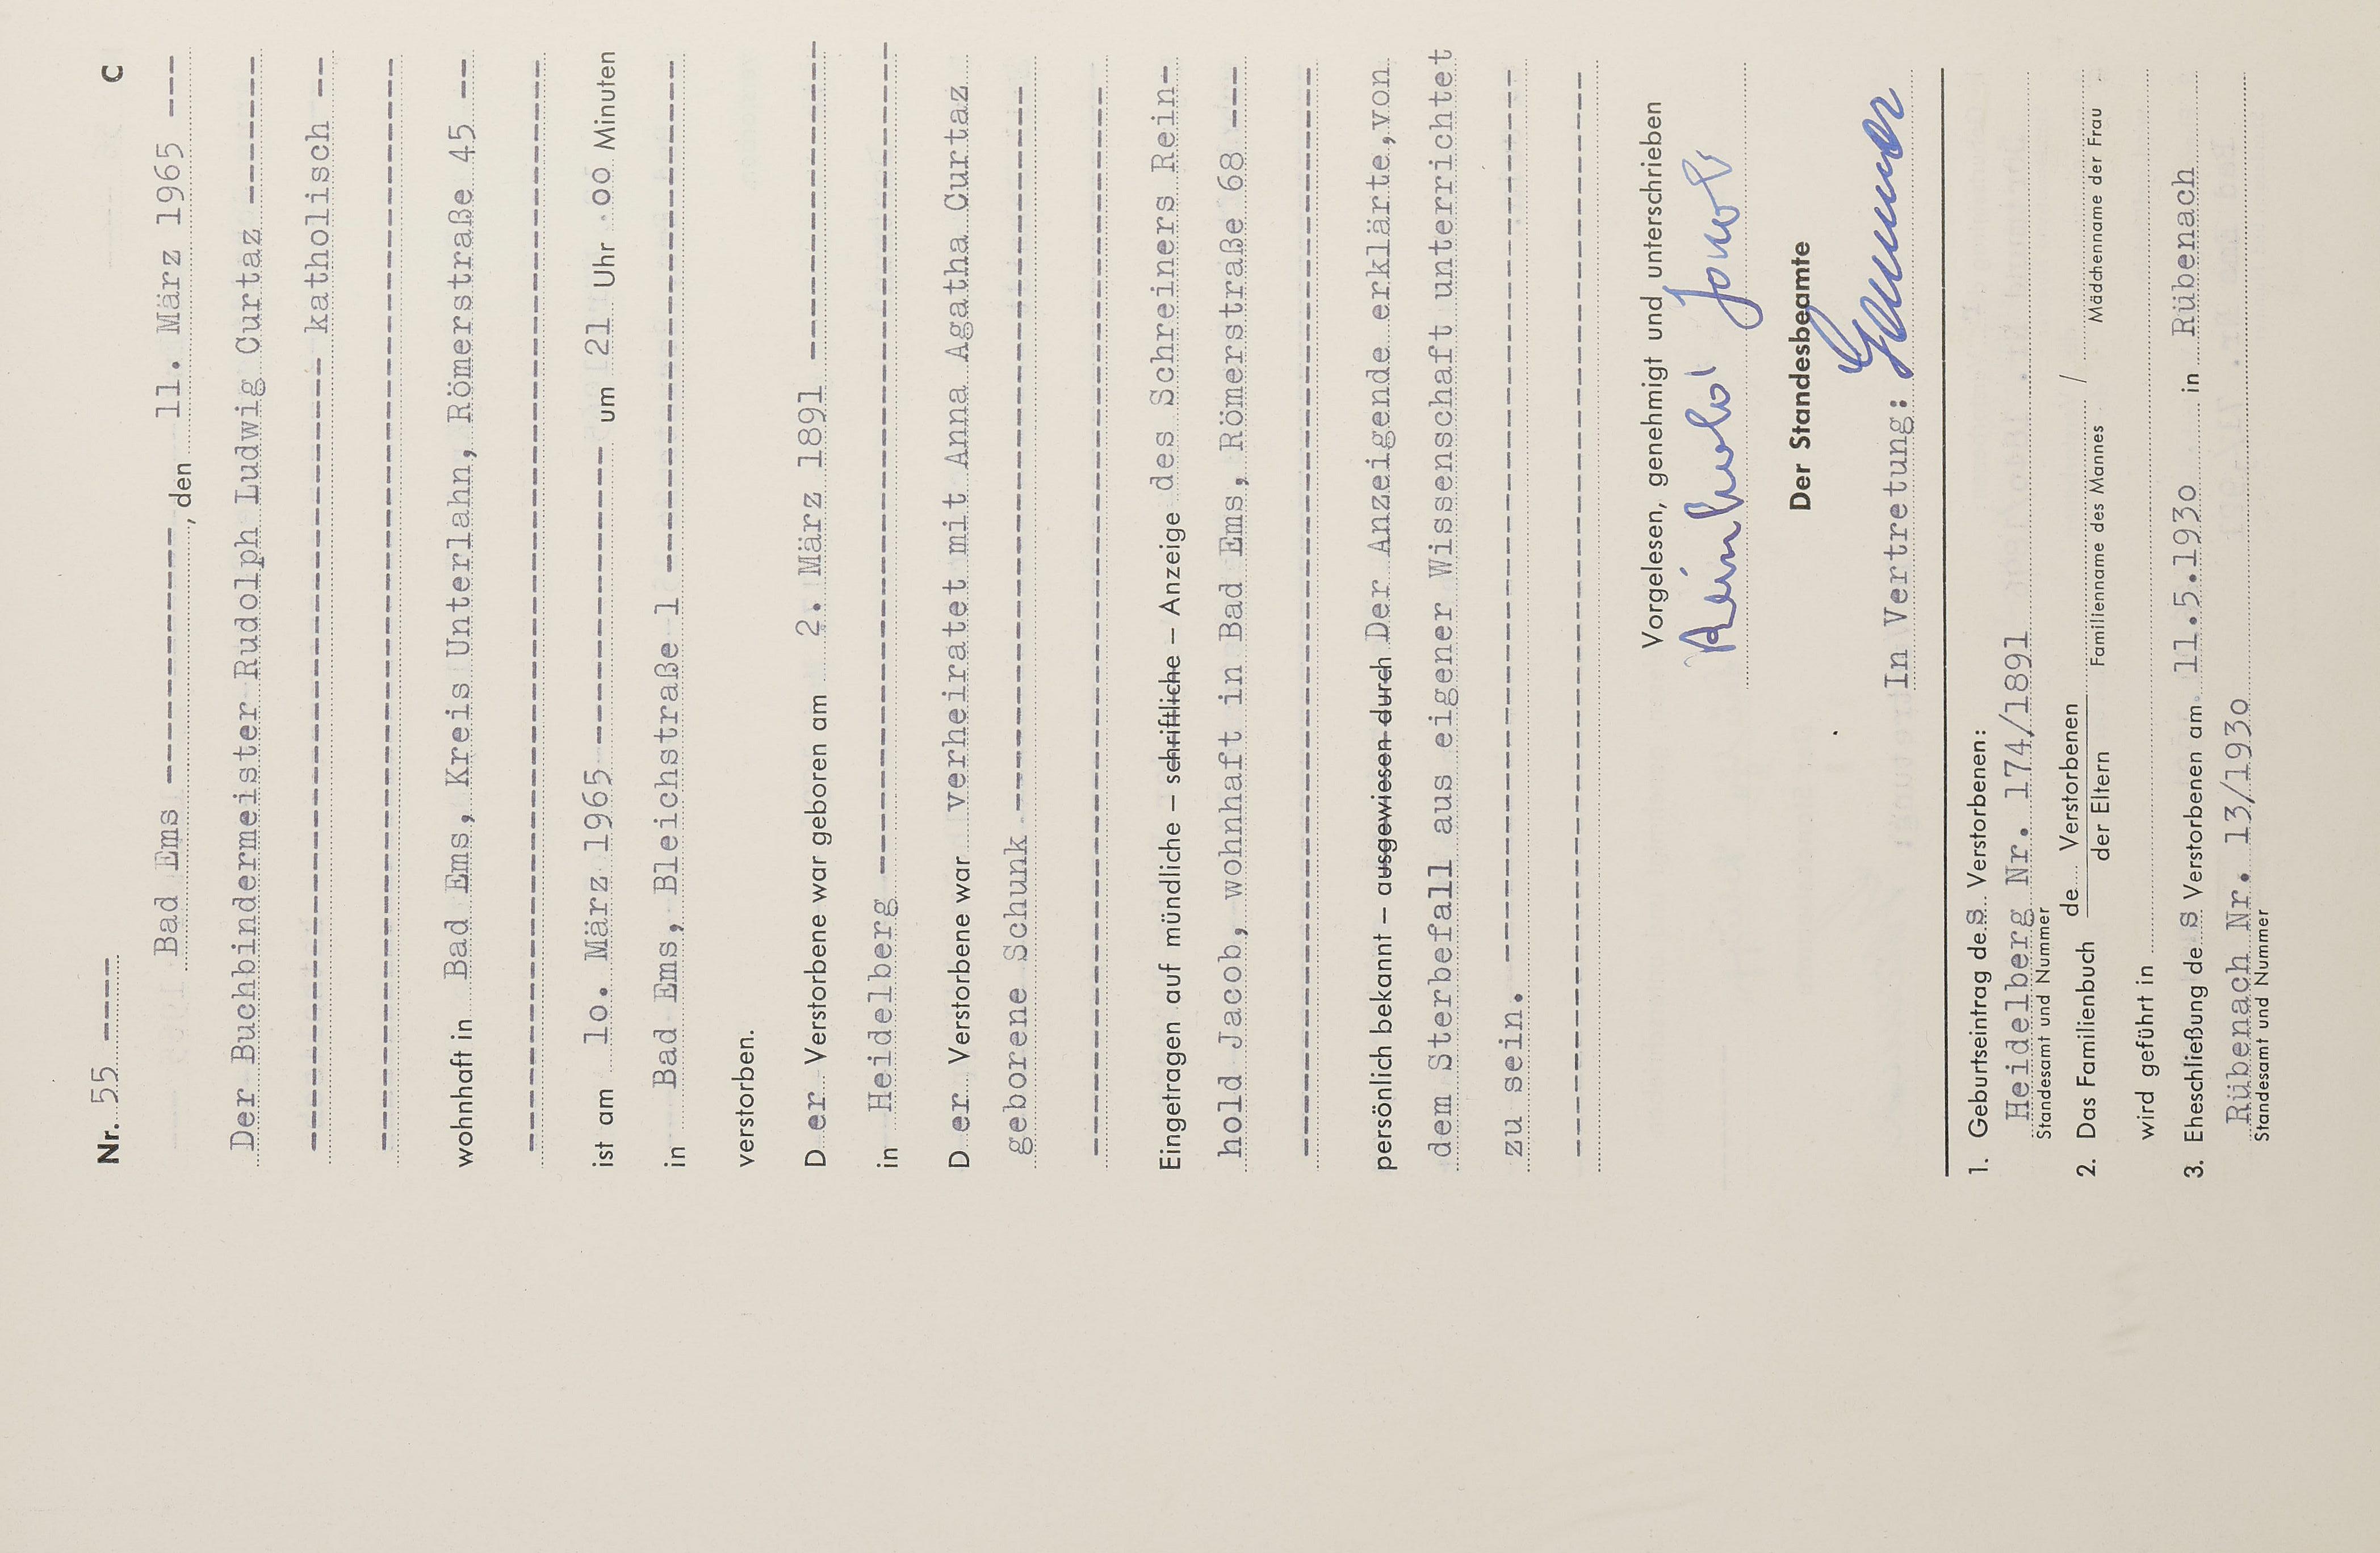 Nr. 55 ----- C
Bad Ems ----------------, den 11. März 1965 ---
Der Buchbindermeister Rudolph Ludwig Curtaz --------
---------------- katholisch ---
wohnhaft in Bad Ems, Kreis Unterlahn, Römerstraße 45 ---
ist am 10. März 1965 ---------------- um 21 Uhr 00 Minuten
in Bad Ems, Bleichstraße 1 ----------------
verstorben.
D er Verstorbene war geboren am 2. März 1891 ----------------
in Heidelberg ----------------
D er Verstorbene war verheiratet mit Anna Agatha Curtaz
geborene Schunk ----------------
Eingetragen auf mündliche – schriftliche – Anzeige des Schreiners Rein-
hold Jacob, wohnhaft in Bad Ems, Römerstraße 68 ---
persönlich bekannt – ausgewiesen durch Der Anzeigende erklärte, von
dem Sterbefall aus eigener Wissenschaft unterrichtet
zu sein. ----------------
Vorgelesen, genehmigt und unterschrieben
Reinhold Jacob
Der Standesbeamte
In Vertretung:
1. Geburtseintrag des Verstorbenen:
Heidelberg Nr. 174/1891
Standesamt und Nummer
2. Das Familienbuch de Verstorbenen
der Eltern
/
Familienname des Mannes Mädchenname der Frau
wird geführt in
3. Eheschließung des Verstorbenen am 11.5.1930 in Rübenach
Rübenach Nr. 13/1930
Standesamt und Nummer